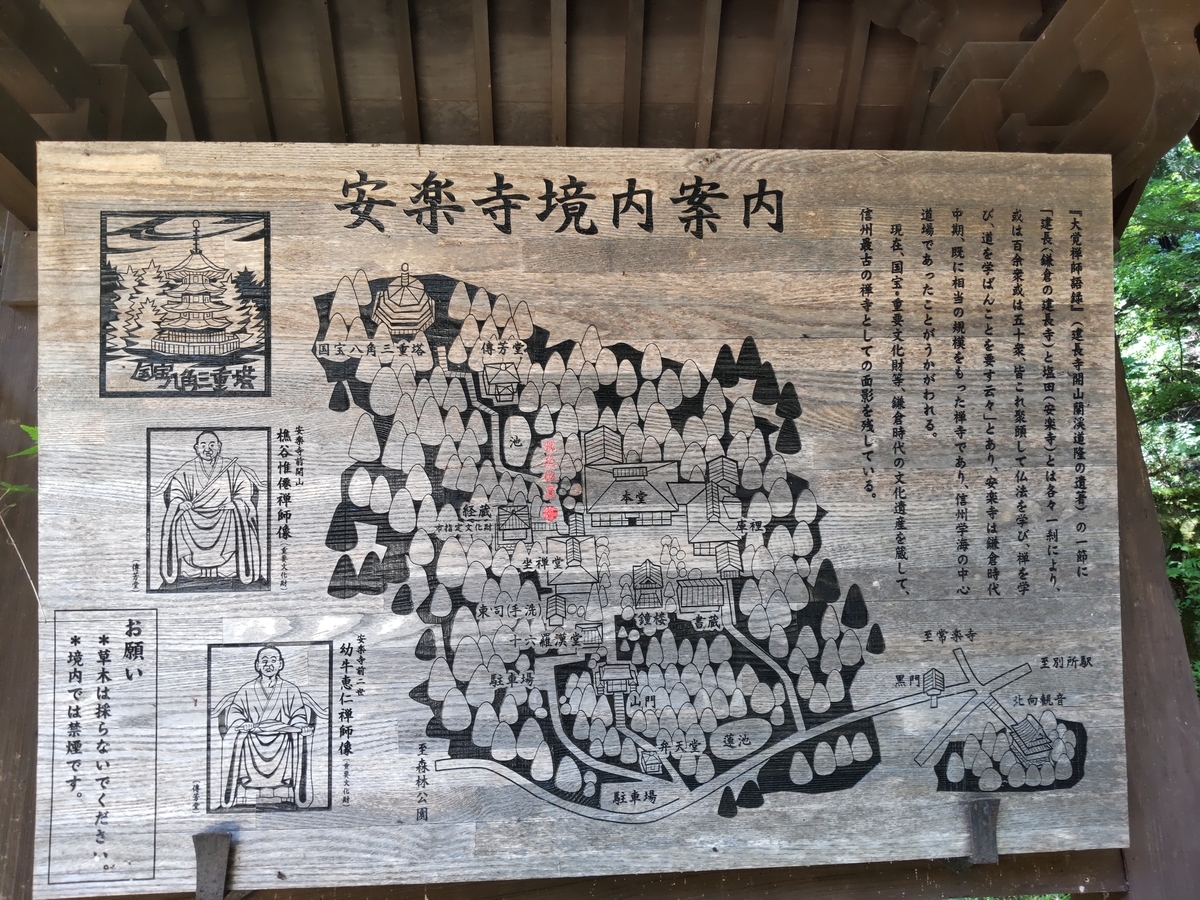 安楽寺境内案内
『大覚禅師語録』（建長寺開山蘭渓道隆の遺著）の一節に
「建長（鎌倉の建長寺）と塩田（安楽寺）とは各々一刹により、
或は百余衆或は五十衆、皆これ聚頭して仏法を学び、禅を学
び、道を学ばんことを要す云々」とあり、安楽寺は鎌倉時代
中期、既に相当の規模をもった禅寺であり、信州学海の中心
道場であったことがうかがわれる。
現在、国宝・重要文化財等、鎌倉時代の文化遺産を蔵して、
信州最古の禅寺としての面影を残している。
国宝八角三重塔
安楽寺前開山
樵谷惟僊禅師像（重要文化財）
（傳芳堂）
安楽寺前二世
幼牛恵仁禅師像（重要文化財）
（傳芳堂）
お願い
＊草木は採らないでください。
＊境内では禁煙です。
国宝八角三重塔
傳芳堂
池
本堂
経蔵
市指定文化財
庫裡
坐禅堂
東司（手洗）
鐘楼
書蔵
十六羅漢堂
駐車場
山門
弁天堂
蓮池
駐車場
至森林公園
至常楽寺
至別所駅
黒門
北向観音